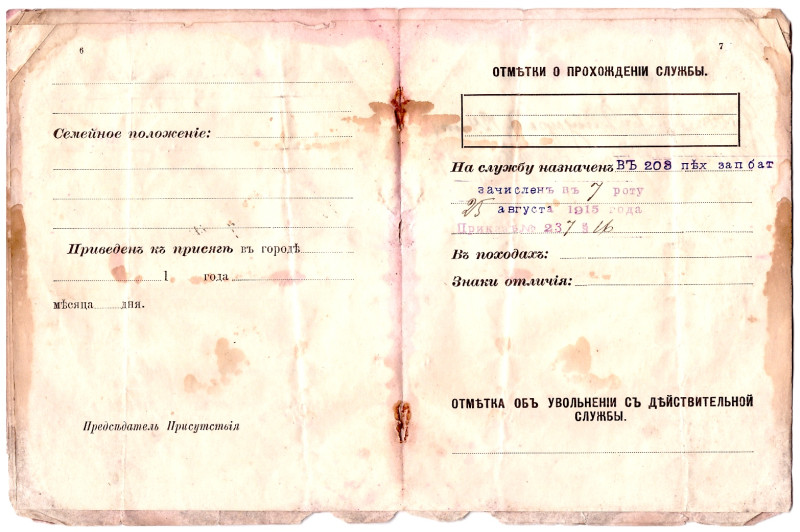 6
Семейное положеніе:
Приведенъ къ присягѣ въ городѣ
1 года
мѣсяца дня.
Предсѣдатель Присутствія
7
ОТМѢТКИ О ПРОХОЖДЕНІИ СЛУЖБЫ.
На службу назначенъ ВЪ 203 пѣх зап бат
зачисленъ въ 7 роту
25 августа 1915 года
237
Въ походахъ:
Знаки отличія:
ОТМѢТКА ОБЪ УВОЛЬНЕНІИ СЪ ДѢЙСТВИТЕЛЬНОЙ
СЛУЖБЫ.